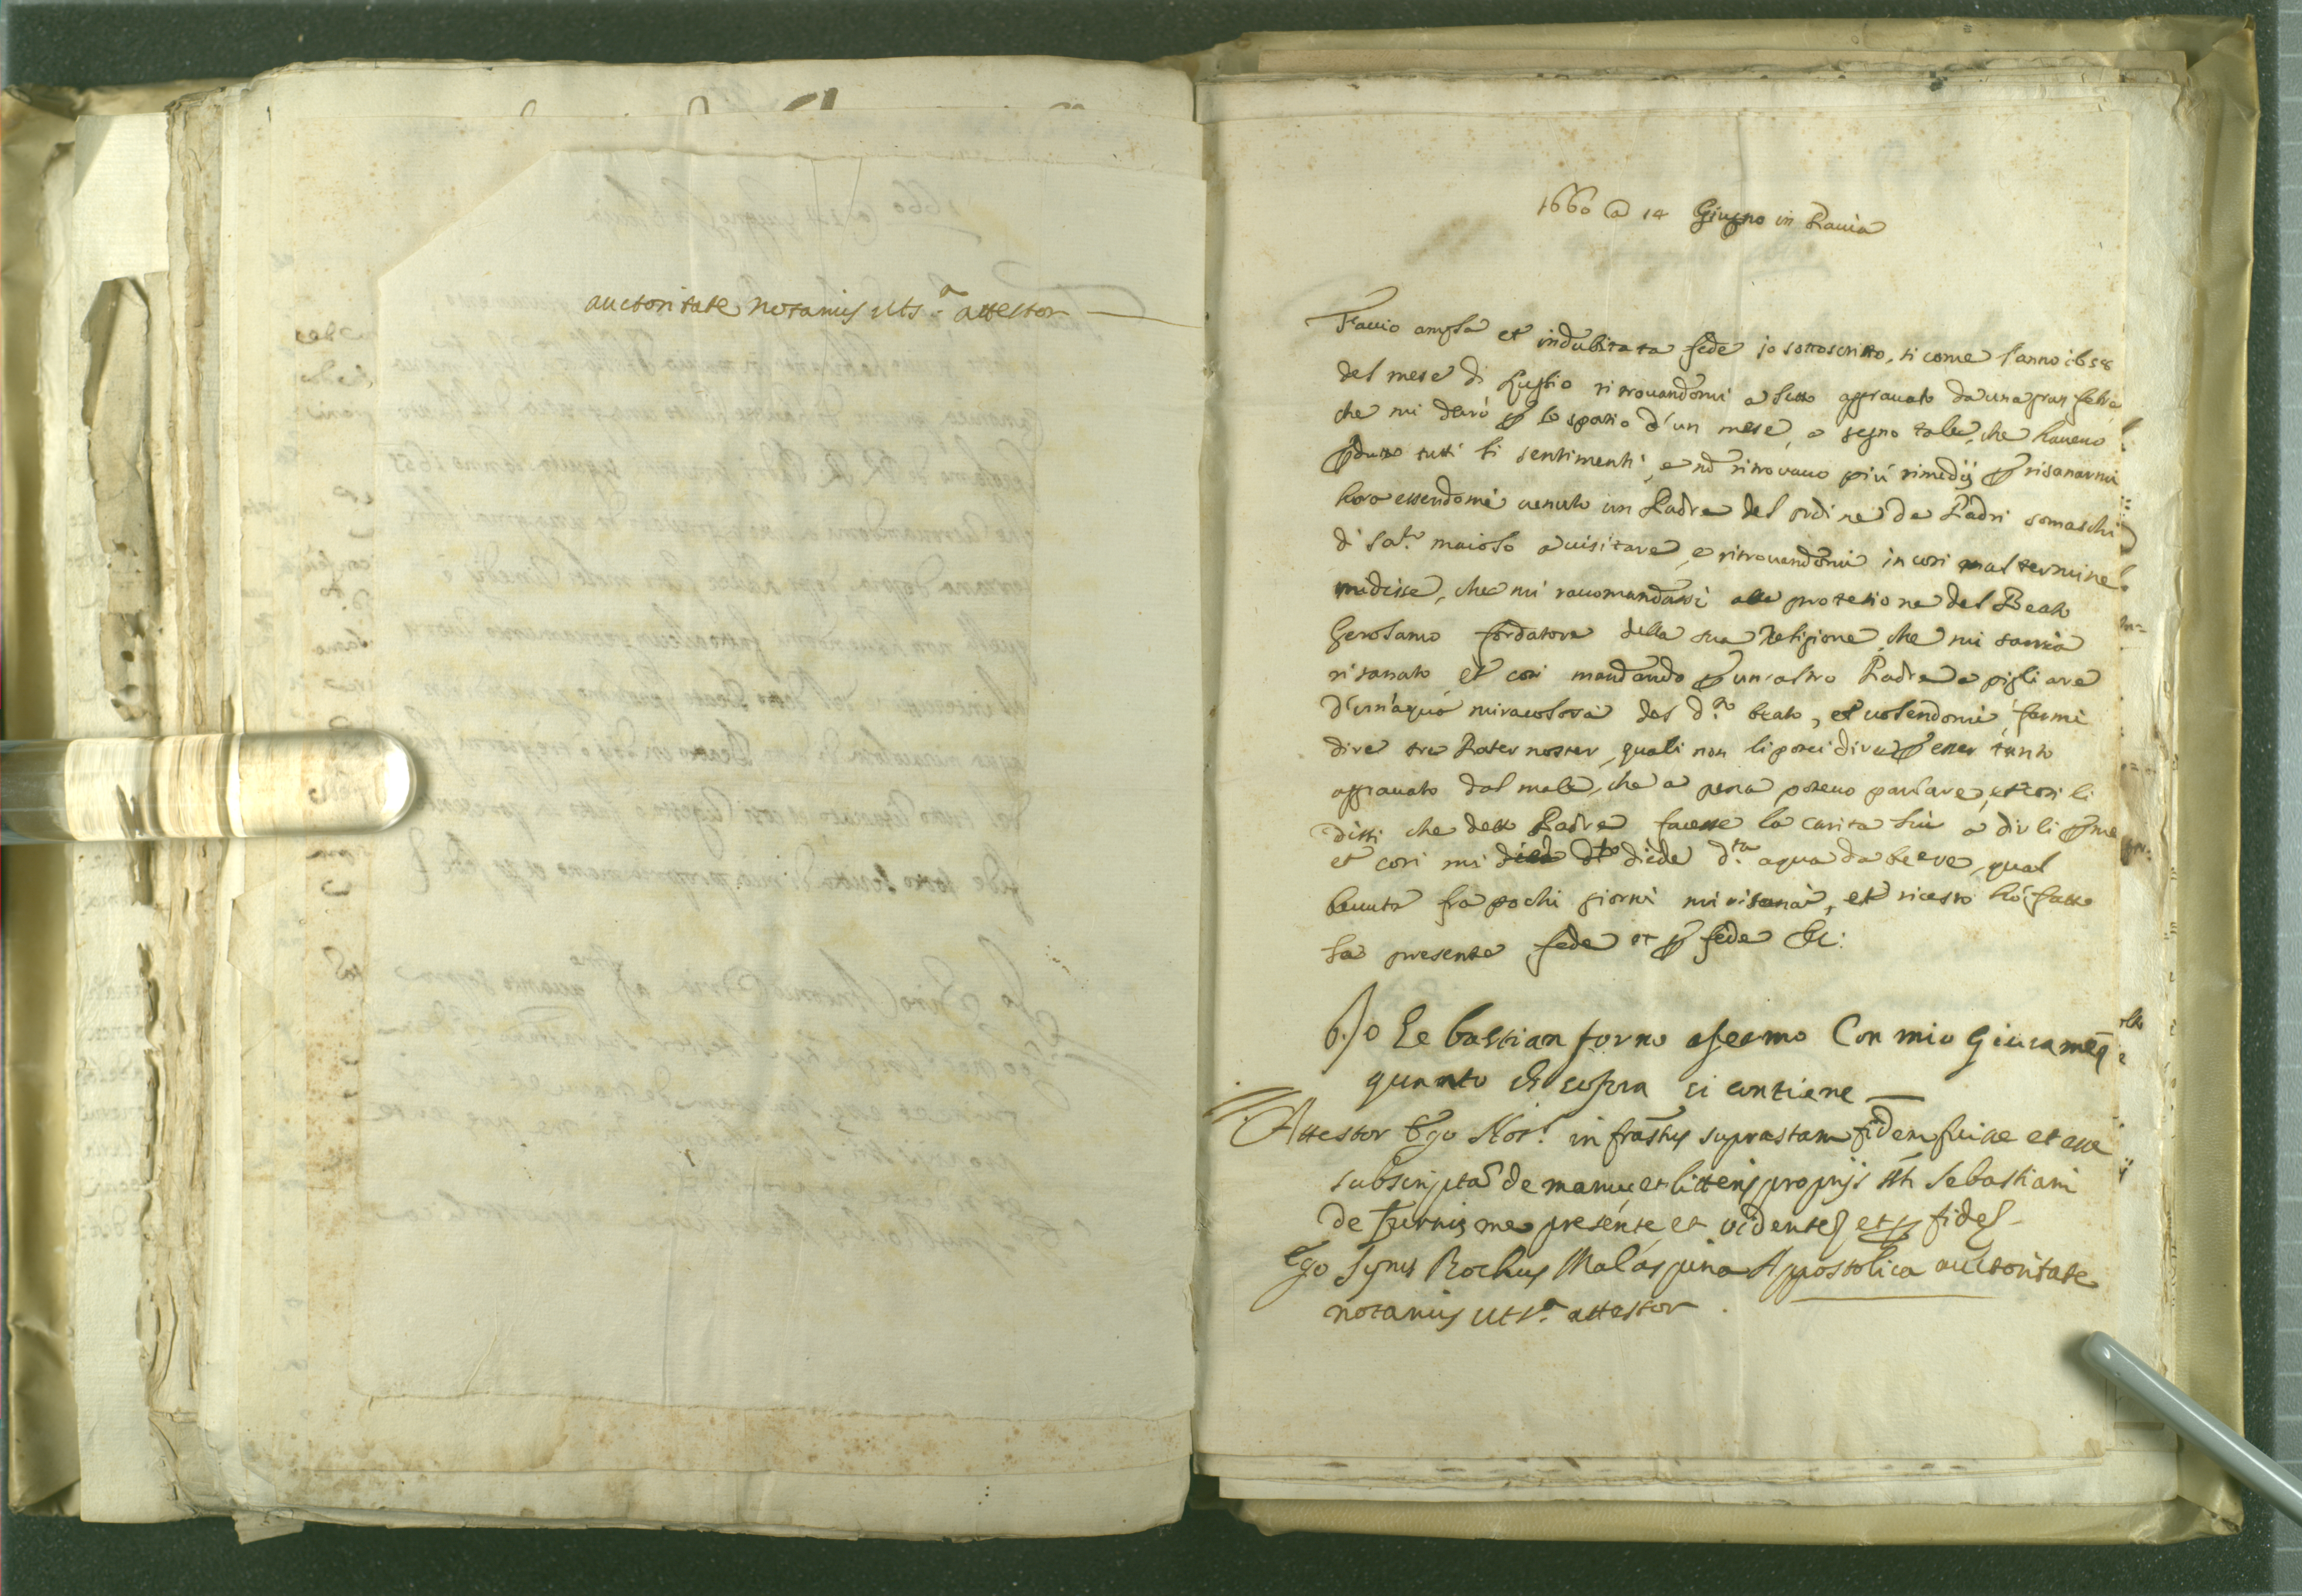 auctoritate notarius uts.a attestor
1660 a 14 Giugno in Pauia
Faccio ampla et indubitata fede io sottoscritto, si come l'anno 1658
del mese di Luglio ritrouandomi a letto aggrauato da una gran febre
che mi durò p lo spatio d'un mese, a segno tale, che haueuo
pduto tutti li sentimenti, e nō ritrouauo più rimedij p risanarmi
hora essendomi uenuto un Padre del ordine de Padri somaschi
di Sa.to maiolo a uisitare, e ritrouandomi in cosi mal termine
mi disse, che mi racomandassi alla protetione del Beato
Gerolamo fondatore della sua Religione, che mi saria
risanato, et cosi mandando p un'altro Padre a pigliare
d'un'aqua miracolosa del d.to beato, et uolendomi farmi
dire tre Pater noster, quali non li potei dire p esser tanto
aggrauato dal male, che a pena poteuo parlare, et cosi li
dissi che detto Padre facesse la carita lui a dir li p me
et cosi mi diede d.to diede d.ta aqua da beere, qual
beuuta frà pochi giorni mi risanai, et ricerto hò fatto
la presente fede et p fede &c:
Io Sebastian forno afermo Con mio Giuramēto
quanto di sopra si contiene
Attestor Ego Not.s infrastus suprastam fidem fuisse et esse
subscriptā de manu et litteris proprijs sti Sebastiani
de Furnis me presente et vidente et p fide
Ego Syrus Rochus Malaspina Appostolica auctoritate
notarius ut s.a attestor